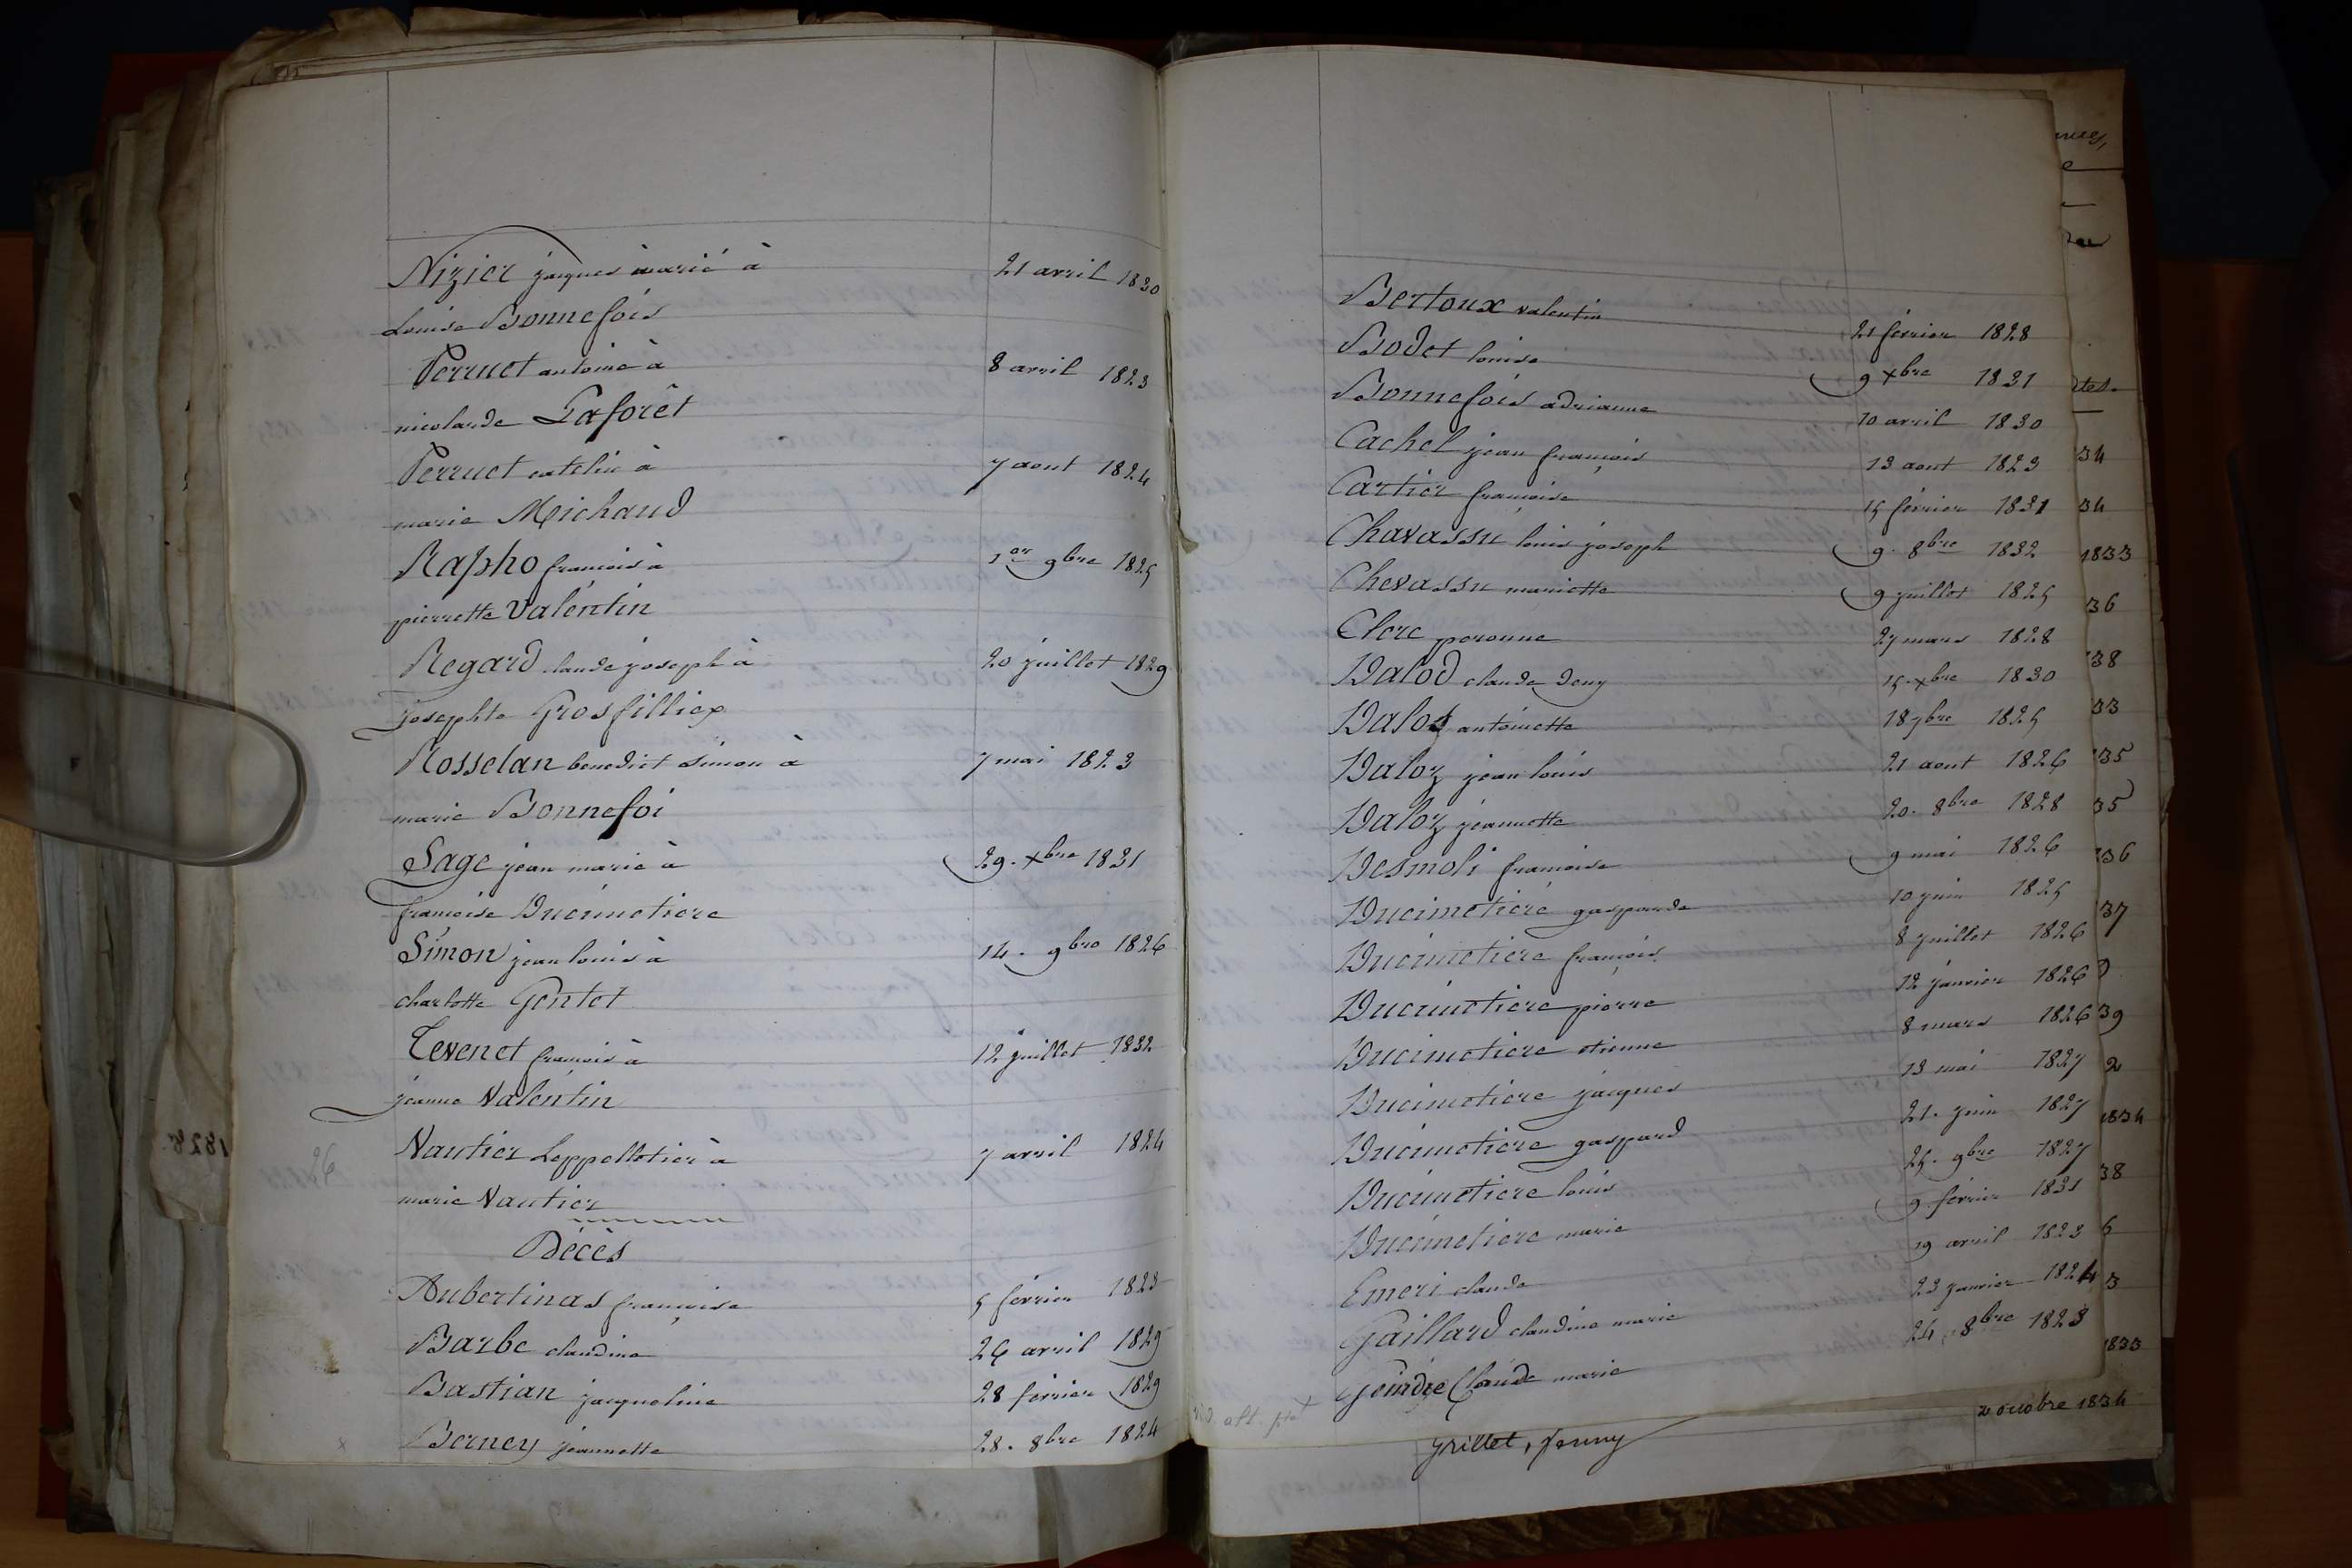 Nizier jaques marié à 21 avril 1830
Louise Bonnefois
Perruet antoine à 8 avril 1823
nicolarde Laforêt
Perruet catelin à 7 aout 1824
marie Michaud
Rapho francois à 1er 9bre 1825
pierrette Valentin
Regard claude joseph à 20 juillet 1829
josephte Grosfilliex
Rosselan benedict simon à 7 mai 1823
marie Bonnefoi
Sage jean marie à 29. xbre 1831
francoise Ducimetiere
Simon jean louis à 14. 9bre 1826
charlotte Gentet
Tevenet francois à 12 juillet 1832
jeanne Valentin
26 Vautier Leppelletier à 7 avril 1824
marie Vautier
Décès
Aubertinas françoise 5 février 1823
Barbe claudine 26 avril 1829
Bastian jacqueline 28 février 1829
Berney jeannette 28. 8bre 1824
Bertoux valentin 21 février 1828
Bodet louise 9 xbre 1831
Bonnefois adrianne 10 avril 1830
Cachel jean françois 13 aout 1823
Cartier francoise 15 février 1831
Chavassu louis joseph 9. 8bre 1832
Chevassu mariette 9 juillet 1825
Clerc peronne 27 mars 1828
Dalod claude Deny 15. xbre 1830
Daloz antoinette 18 7bre 1825
Daloz jean louis 21 aout 1826
Daloz jeannette 20. 8bre 1828
Desmoli francoise 9 mai 1826
Ducimetiere gasparde 10 juin 1825
Ducimetiere françois 8 juillet 1826
Ducimetiere pierre 12 janvier 1826
Ducimetiere etienne 8 mars 1826
Ducimetiere jacques 13 mai 1827
Ducimetiere gaspard 21. juin 1827
Ducimetiere louis 25. 9bre 1827
Ducimetiere marie 9 février 1831
Emeri claude 19 avril 1823
Gaillard claudine marie 23 janvier 1824
Geindre Claude marie 24. 8bre 1828
grillet, Jenny 2 octobre 1834
34
34
1833
36
38
33
35
35
36
37
39
2
1834
38
6
3
1833
1828